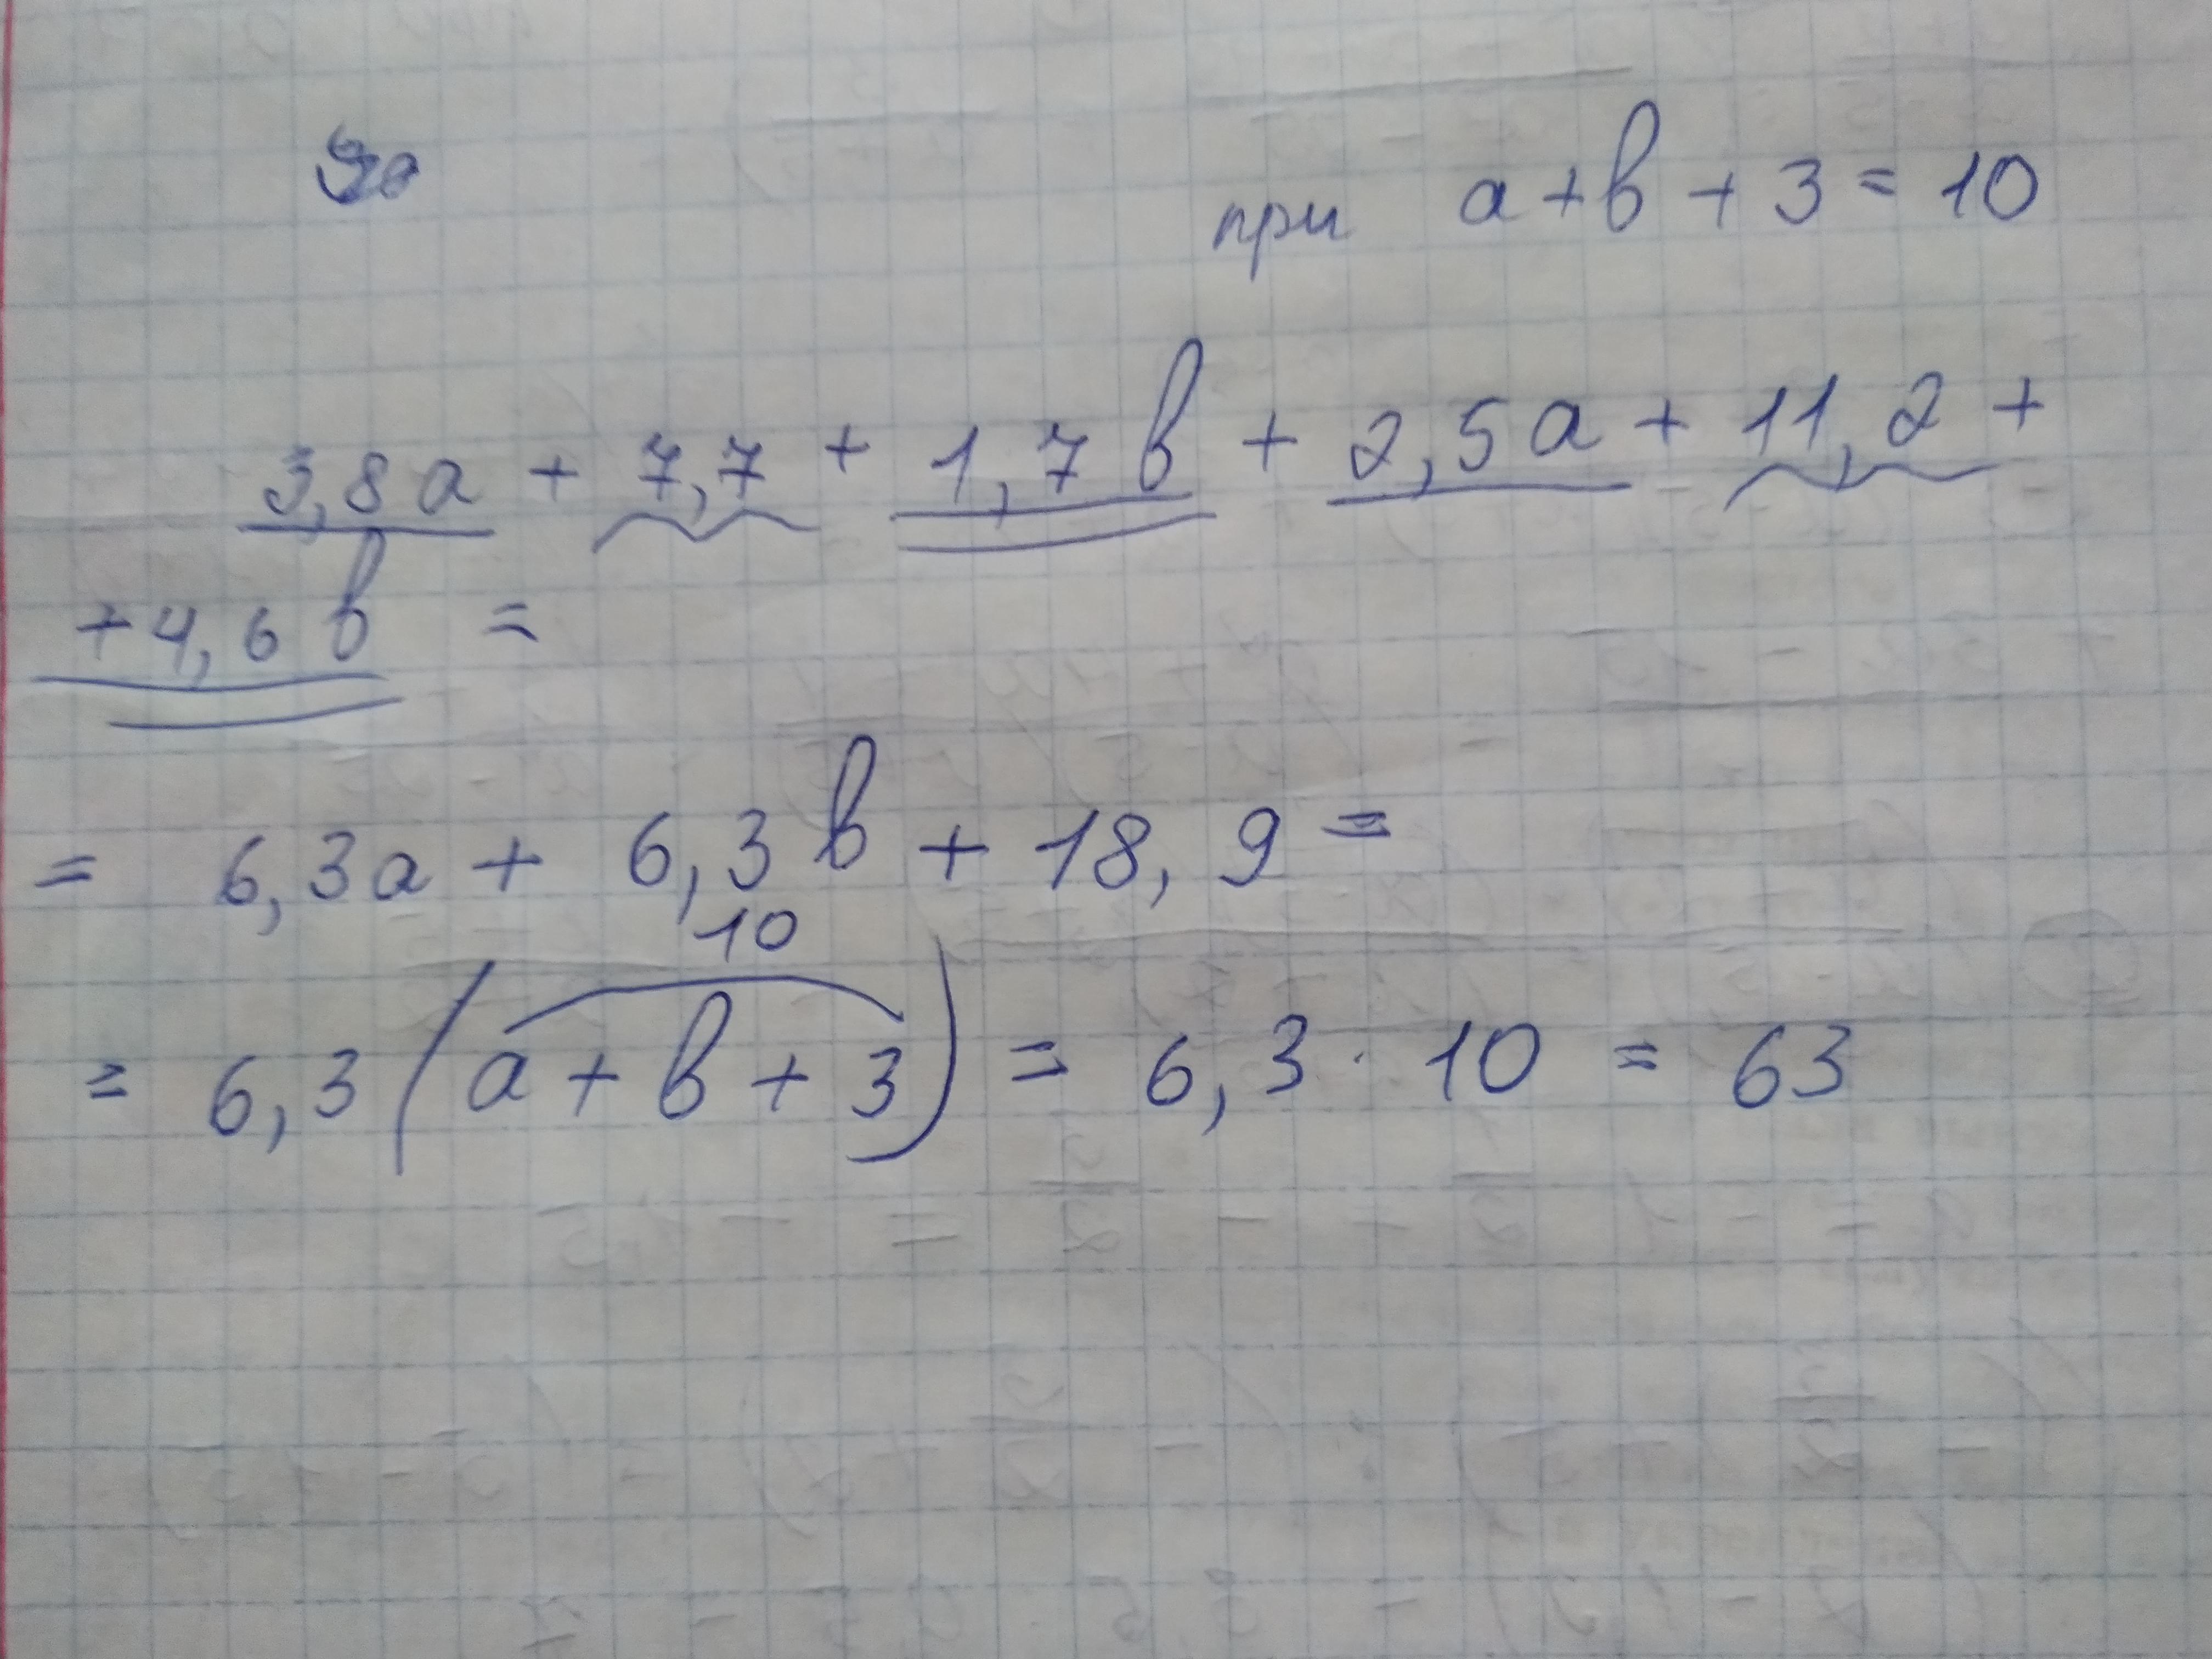 при a + b + 3 = 10
3,8a + 7,7 + 1,7b + 2,5a + 11,2 +
+ 4,6b =
= 6,3a + 6,3b + 18,9 =
10
= 6,3(a + b + 3) = 6,3 · 10 = 63